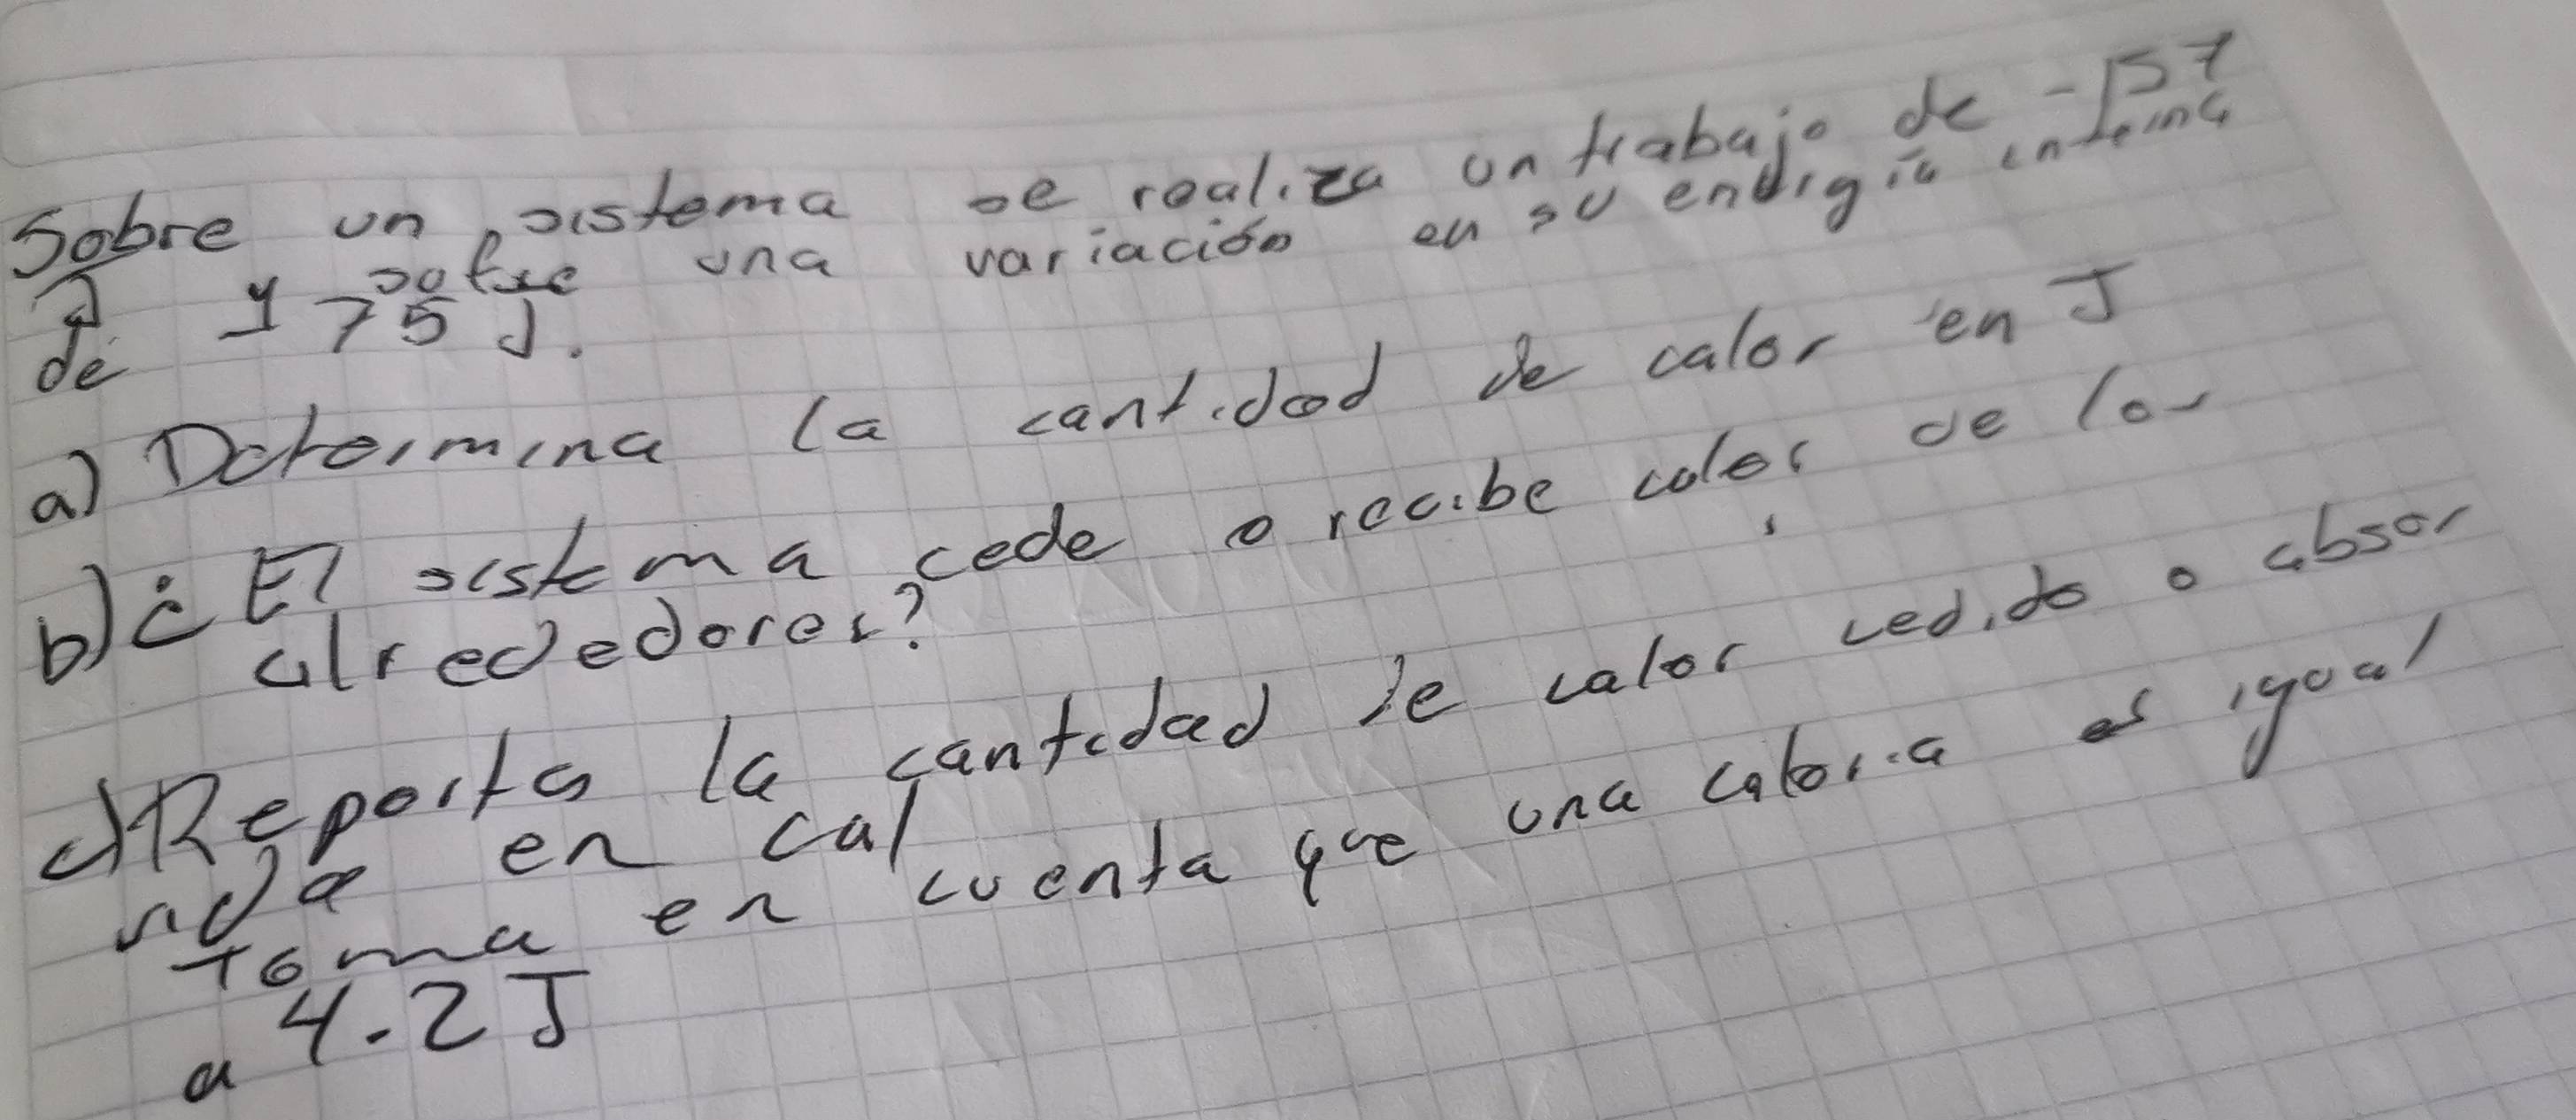 Sobre un sistema se realiza un trabajo de -157
J y sufre una variación en su energía interna
de 75 J.
a) Determina la cantidad de calor en J
b) ¿El sistema cede o recibe calor de los
alrededores?
c) Reporta la cantidad de calor cedido o absor
vida en cal
Toma en cuenta que una caloria es igual
a 4.2 J